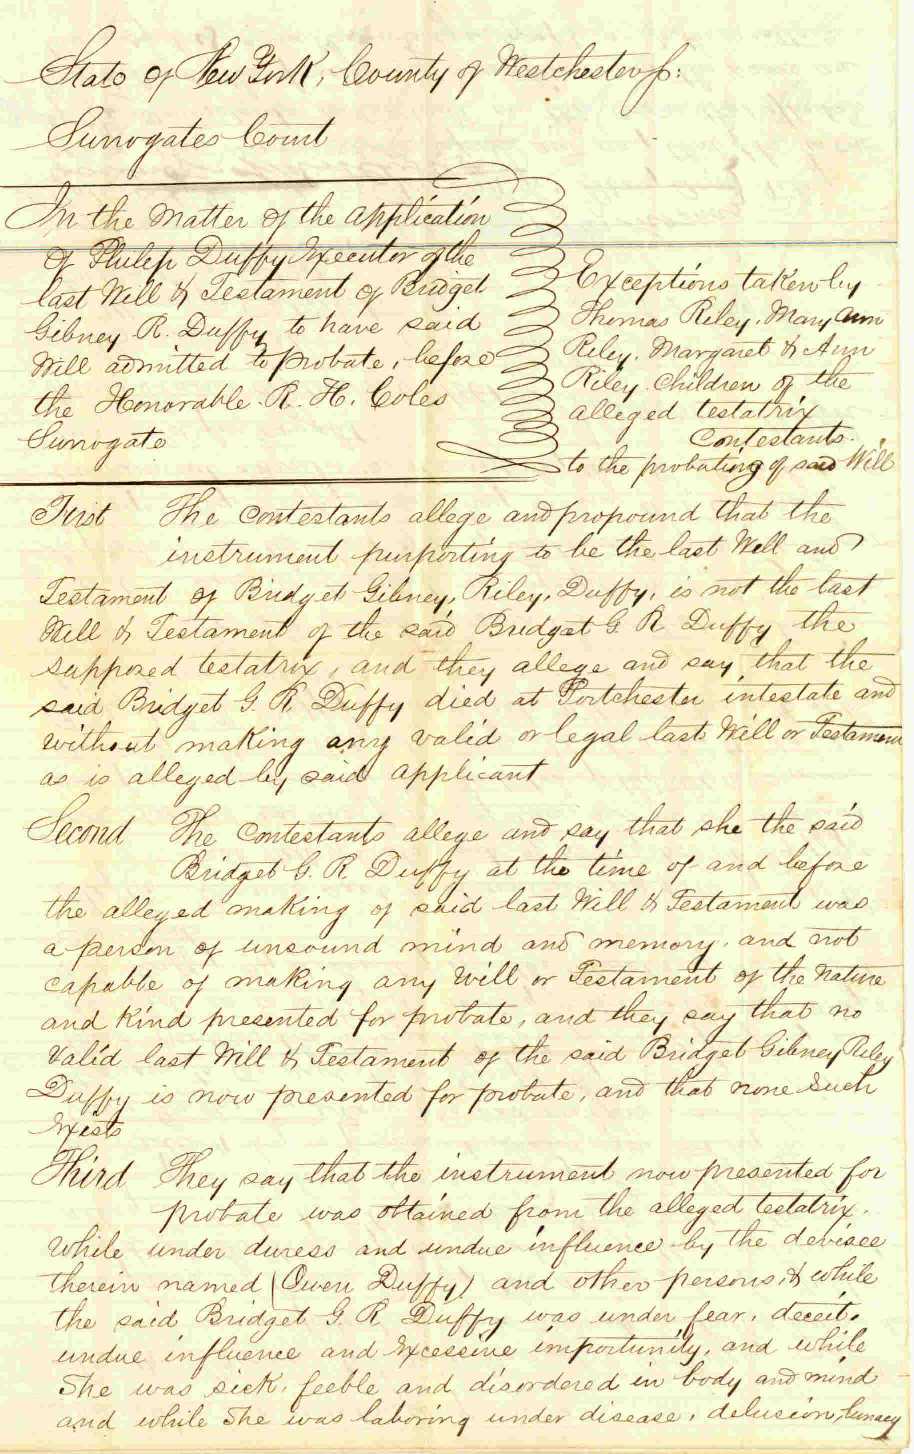 State of New York, County of Westchester ss:
Surrogates Court
In the Matter of the application
of Philip Duffy Executor of the
last Will & Testament of Bridget
Gibney R. Duffy to have said
Will admitted to probate, before
the Honorable R. H. Coles
Surrogate
Exceptions taken by
Thomas Riley, Mary Ann
Riley, Margaret & Ann
Riley Children of the
alleged testatrix
Contestants.
to the probating of said Will
First The Contestants allege and propound that the
instrument purporting to be the last Will and
Testament of Bridget Gibney, Riley, Duffy, is not the last
Will & Testament of the said Bridget G R Duffy the
supposed testatrix, and they allege and say that the
said Bridget G. R. Duffy died at Portchester intestate and
without making any valid or legal last Will or Testament
as is alleged by said applicant
Second The Contestants allege and say that she the said
Bridget G. R. Duffy at the time of and before
the alleged making of said last Will & Testament was
a person of unsound mind and memory, and not
capable of making any Will or Testament of the nature
and kind presented for probate, and they say that no
valid last Will & Testament of the said Bridget Gibney Riley
Duffy is now presented for probate, and that none such
exists
Third They say that the instrument now presented for
probate was obtained from the alleged testatrix.
while under duress and undue influence by the devisee
therein named (Owen Duffy) and other persons, & while
the said Bridget G. R Duffy was under fear, deceit,
undue influence and excessive importunity, and while
She was sick, feeble and disordered in body and mind
and while She was laboring under disease, delusion, lunacy